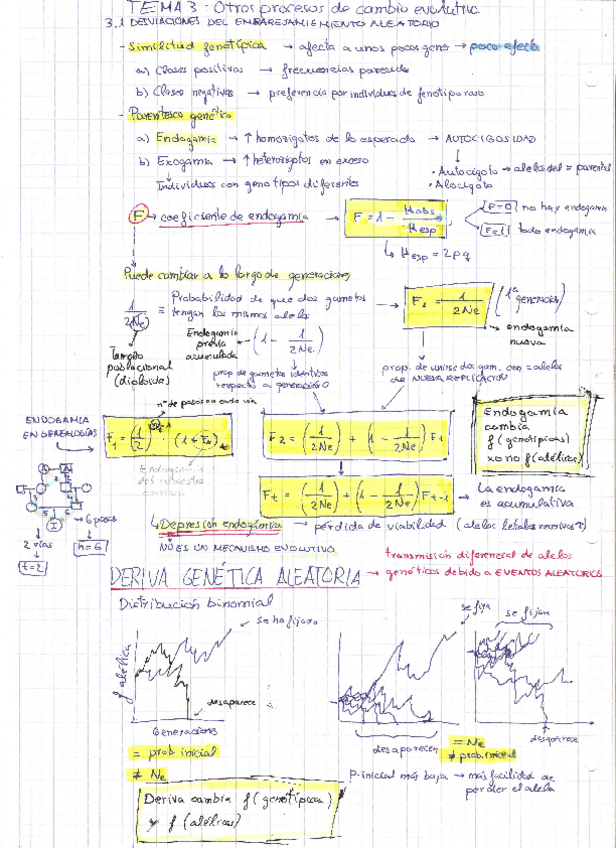 TEMA 3: Otros procesos de cambio evolutivo.
3.1 DESVIACIONES DEL EMPAREJAMIENTO ALEATORIO
- Similitud fenotípica → afecta a unos pocos genes → poco efecto
a) Clases positivas → frecuencias parecidas
b) Clases negativas → preferencia por individuos de fenotipo raro
- Parentesco genético
a) Endogamia → ↑ homozigotos de lo esperado → AUTOCIGOSIDAD
b) Exogamia → ↑ heterozigotos en exceso
· Autocigoto → alelos del = parental
· Alocigoto
Individuos con genotipos diferentes
F → coeficiente de endogamia → F = 1 - Hobs / Hesp
F=0 no hay endogamia
F=1 todo endogamia
↳ Hesp = 2pq
Puede cambiar a lo largo de generaciones
1/2Ne = Probabilidad de que dos gametos tengan los mismos alelos → F1 = 1/2Ne (1ª generación)
→ endogamia nueva
Tamaño poblacional (diploide)
Endogamia previa acumulada (1 - 1/2Ne)
prop de gametos idénticos respecto a generación 0
prop. de unirse dos gam. con = alelos de NUEVA REPLICACIÓN
nº de pasos en cada vía
ENDOGAMIA EN GENEALOGÍAS
F2 = (1/2Ne) + (1 - 1/2Ne) F1
Endogamia cambia f(genotípicas) xo no f(alélicas)
Ft = (1/2Ne) + (1 - 1/2Ne) Ft-1 → La endogamia es acumulativa
6 pasos
n=6
2 vías
t=2
↳ Depresión endogámica → pérdida de viabilidad (alelos letales recesivos ↑)
NO ES UN MECANISMO EVOLUTIVO
DERIVA GENÉTICA ALEATORIA → transmisión diferencial de alelos genéticos debido a EVENTOS ALEATORIOS
Distribución binomial
se ha fijado
se fija
se fijan
f alélica
desaparece
Generaciones
desaparecen
desaparece
= prob inicial
≠ Ne
= Ne
≠ prob. inicial
P. inicial más baja → más facilidad de perder el alelo
Deriva cambia f(genotípicas) y f(alélicas)